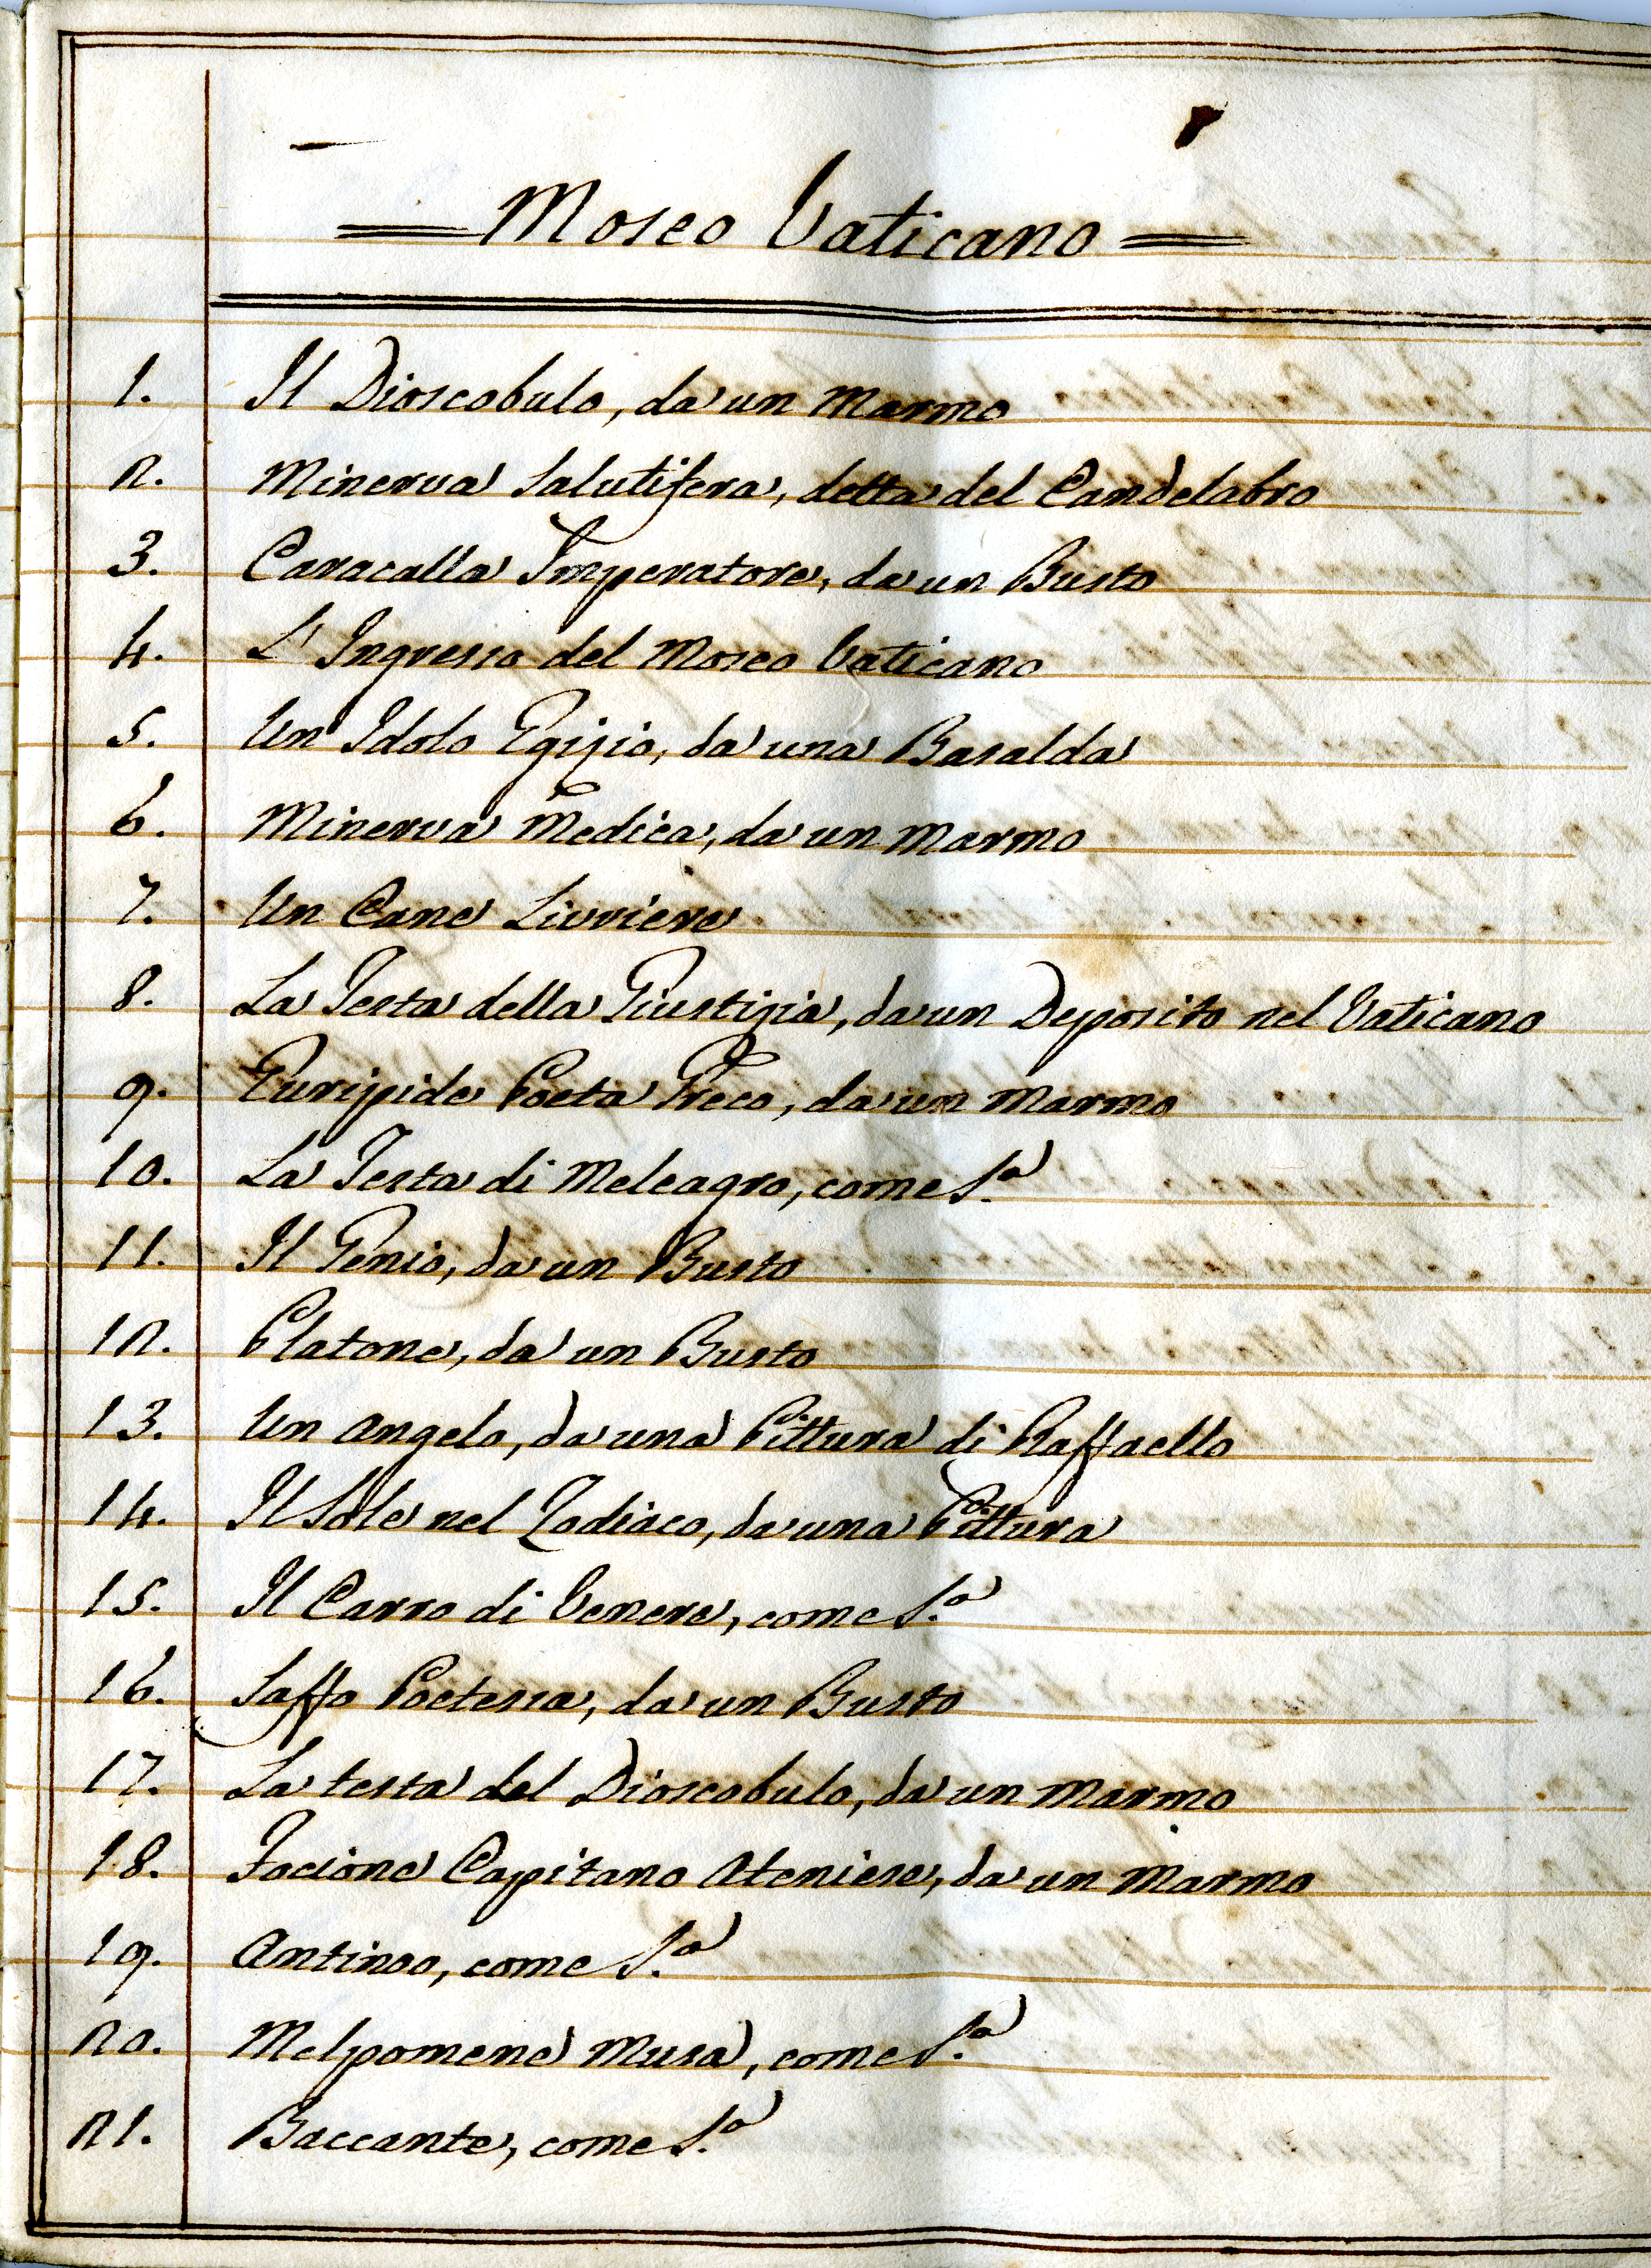 Moseo Vaticano
1. Il Dioscobulo, da un Marmo
2. Minerva Salutifera, detta del Candelabro
3. Caracalla Imperatore, da un Busto
4. L'Ingresso del Moseo Vaticano
5. Un Idolo Egizio, da una Basalda
6. Minerva Medica, da un Marmo
7. Un Cane Livriere
8. La Testa della Giustizia, da un Deposito nel Vaticano
9. Euripide Poeta Greco, da un Marmo
10. La Testa di Meleagro, come S.a
11. Il Genio, da un Busto
12. Platone, da un Busto
13. Un Angelo, da una Pittura di Raffaello
14. Il Sole nel Zodiaco, da una Pittura
15. Il Carro di Venere, come S.a
16. Saffo Poetessa, da un Busto
17. La testa del Dioscobulo, da un Marmo
18. Focione Capitano Ateniese, da un Marmo
19. Antinoo, come S.a
20. Melpomene Musa, come S.a
21. Baccante, come S.a